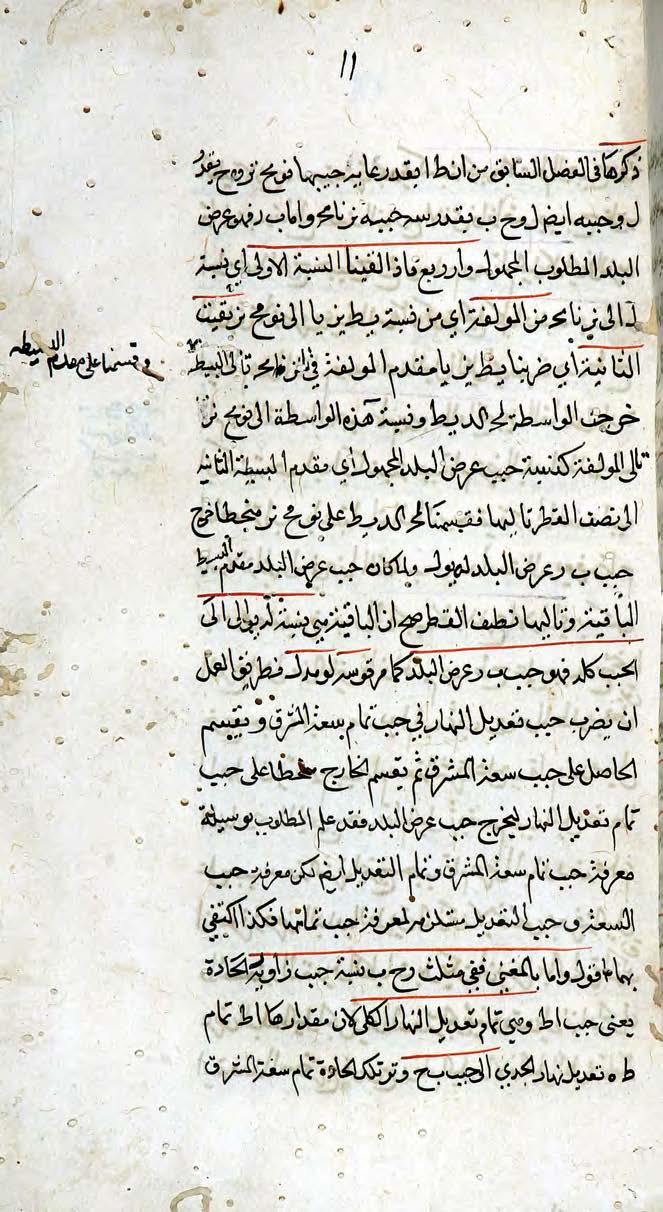 ١١
ذكرها في الفصل السابق من ان ط ا بقدر عا به جيبها نو مح نر و ح بقدر
ل وجيبه ايضا ل و ح ب بقدر سه جيبه نر نا مح واما ب ر فهو عرض
البلد المطلوب المجهول وا ر ربع فاذا القينا النسبة الاولى اي نسبة
ل الى نر نا مح من المولفة اي من نسبة ب ط يز يا الى نو مح نر بقيت
الثانية اي ضربنا ب ط يز يا مقدم المولفة في نر نا مح تالى البسيطة
وقسمنا على مقدم البسيطة
خرجت الواسطة لح الد يط ونسبة هذه الواسطة الى نو مح نر
تالى المولفة كنسبة جيب عرض البلد المجهول اي مقدم البسيطة الثانية
الى نصف القطر تاليها فقسمنا لح الد يط على نو مح نر منحطا خرج
جيب ب ر عرض البلد ولما كان جيب عرض البلد مقدم البسيطة
الباقية وتاليها نصف القطر صح ان الباقية هي نسبة الى
الجيب كله فهو جيب ب ر عرض البلد كما مر قوسه لو مد ل فطريق العمل
ان يضرب جيب تعديل النهار في جيب تمام سعة المشرق ويقسم
الحاصل على جيب سعة المشرق ثم يقسم الخارج منحطا على جيب
تمام تعديل النهار ليخرج جيب عرض البلد فقد علم المطلوب بوسيلة
معرفة جيب تمام سعة المشرق وتمام التعديل ايضا لكن معرفة جيب
السعة وجيب التعديل مستلزم لمعرفة جيب تمامها فكذا اكتفي
بهما اقول واما بالمغني ففي مثلث ر ح ب نسبة جيب زاوية الحادة
يعني جيب ا ط وهي تمام تعديل النهار الكلى لان مقدارها ا ط تمام
ط ه تعديل نهار الجدي الى جيب ب ح وتر تلك الحادة تمام سعة المشرق